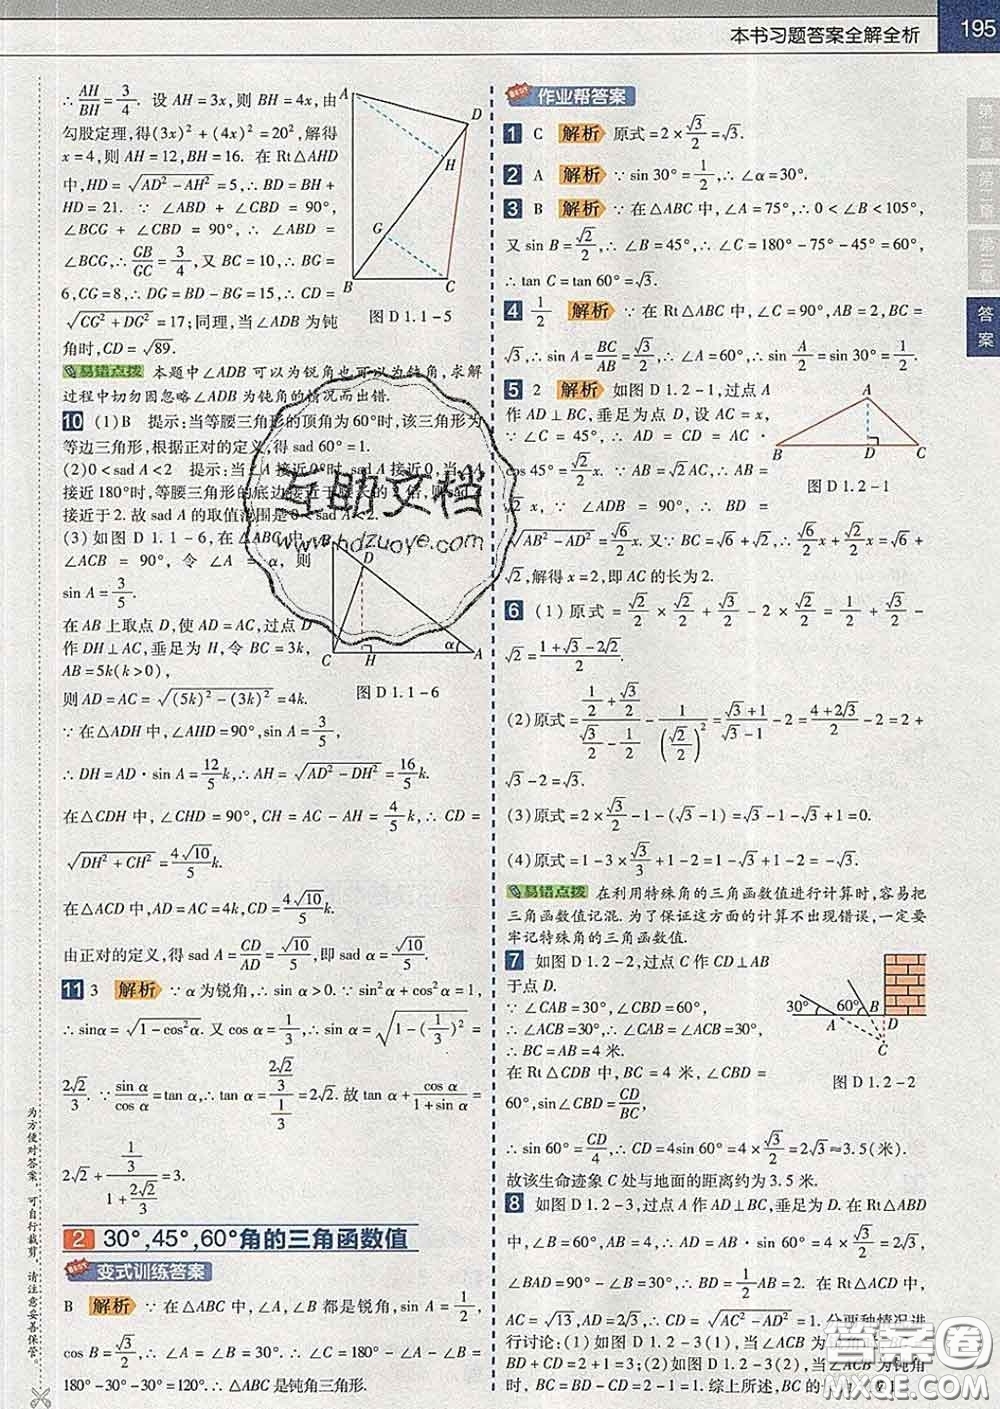 本书习题答案全解全析 195
第一章 第二章 第三章 答案
∴ AH/BH = 3/4. 设 AH=3x,则 BH=4x,由
勾股定理,得(3x)²+(4x)²=20²,解得
x=4,则 AH=12,BH=16. 在 Rt△AHD
中,HD=√(AD²-AH²)=5,∴ BD=BH+
HD=21. ∵ ∠ABD+∠CBD=90°,
∠BCG+∠CBD=90°,∴ ∠ABD=
∠BCG,∴ GB/GC=3/4,又 BC=10,∴ BG=
6,CG=8,∴ DG=BD-BG=15,∴ CD=
√(CG²+DG²)=17;同理,当∠ADB 为钝
角时,CD=√89.
A D H G B C
图 D 1.1-5
易错点拨 本题中∠ADB 可以为锐角也可以为钝角,求解
过程中切勿因忽略∠ADB 为钝角的情况而出错.
10 (1)B 提示:当等腰三角形的顶角为60°时,该三角形为
等边三角形,根据正对的定义,得 sad 60°=1.
(2)0<sad A<2 提示:当∠A接近0°时,sad A接近0,当∠A
接近180°时,等腰三角形的底边接近于腰长的2倍,则sad A
接近于2.故 sad A的取值范围是0<sad A<2.
(3)如图 D 1.1-6,在△ABC中,
∠ACB=90°,令∠A=α,则
sin A=3/5.
在 AB 上取点 D,使 AD=AC,过点 D
作 DH⊥AC,垂足为 H,令 BC=3k,
AB=5k(k>0),
则 AD=AC=√((5k)²-(3k)²)=4k.
B D C H α A
图 D 1.1-6
∵ 在△ADH 中,∠AHD=90°,sin A=3/5,
∴ DH=AD·sin A=12/5 k,∴ AH=√(AD²-DH²)=16/5 k.
在△CDH 中,∠CHD=90°,CH=AC-AH=4/5 k,∴ CD=
√(DH²+CH²)=4√10/5 k.
在△ACD 中,AD=AC=4k,CD=4√10/5 k.
由正对的定义,得 sad A=CD/AD=√10/5,即 sad α=√10/5.
11 3 解析 ∵ α为锐角,∴ sin α>0. ∵ sin²α+cos²α=1,
∴ sinα=√(1-cos²α). 又 cos α=1/3,∴ sin α=√(1-(1/3)²)=
2√2/3. ∵ sin α/cos α=tan α,∴ tan α=(2√2/3)/(1/3)=2√2. 故tan α+cos α/(1+sin α)=
2√2+(1/3)/(1+2√2/3)=3.
2 30°,45°,60°角的三角函数值
变式训练答案
B 解析 ∵ 在△ABC 中,∠A,∠B 都是锐角,sin A=1/2,
cos B=√3/2,∴ ∠A=∠B=30°,∴ ∠C=180°-∠A-∠B=
180°-30°-30°=120°.∴ △ABC 是钝角三角形.
作业帮答案
1 C 解析 原式=2×√3/2=√3.
2 A 解析 ∵ sin 30°=1/2,∴ ∠α=30°.
3 B 解析 ∵ 在△ABC 中,∠A=75°,∴ 0<∠B<105°,
又 sin B=√2/2,∴ ∠B=45°,∴ ∠C=180°-75°-45°=60°,
∴ tan C=tan 60°=√3.
4 1/2 解析 ∵ 在 Rt△ABC 中,∠C=90°,AB=2,BC=
√3,∴ sin A=BC/AB=√3/2,∴ ∠A=60°,∴ sin A/2=sin 30°=1/2.
5 2 解析 如图 D 1.2-1,过点 A
作 AD⊥BC,垂足为点 D,设 AC=x,
∵ ∠C=45°,∴ AD=CD=AC·
cos 45°=√2/2 x. ∵ AB=√2AC,∴ AB=
√2 x, ∵ ∠ADB=90°,∴ BD=
√(AB²-AD²)=√6/2 x. 又∵ BC=√6+√2,∴ √6/2 x+√2/2 x=√6+
√2,解得 x=2,即 AC 的长为 2.
A B D C
图 D 1.2-1
6 (1)原式=√2/2×√2/2+√3/2-2×√2/2=1/2+√3/2-
√2=(1+√3-2√2)/2.
(2)原式=(1/2+√3/2)/(√3/2-1/2)-1/(√2/2)²=(√3+1)/(√3-1)-2=(4+2√3)/2-2=2+
√3-2=√3.
(3)原式=2×√3/2-1-(√3-1)=√3-1-√3+1=0.
(4)原式=1-3×√3/3+1-2=1-√3+1-2=-√3.
易错点拨 在利用特殊角的三角函数值进行计算时,容易把
三角函数值记混.为了保证这方面的计算不出现错误,一定要
牢记特殊角的三角函数值.
7 如图 D 1.2-2,过点 C 作 CD⊥AB
于点 D.
∵ ∠CAB=30°,∠CBD=60°,
∴ ∠ACB=30°,∴ ∠CAB=∠ACB=30°,
∴ BC=AB=4 米.
在 Rt△CDB 中,BC=4 米,∠CBD=
60°,sin∠CBD=CD/BC,
30° 60° A B D C
图 D 1.2-2
∴ sin 60°=CD/4,∴ CD=4sin 60°=4×√3/2=2√3≈3.5(米).
故该生命迹象 C 处与地面的距离约为 3.5 米.
8 如图 D 1.2-3,过点 A 作 AD⊥BC,垂足为 D. 在 Rt△ABD
中,∵ ∠ABC=60°,AB=4,∴ AD=AB·sin 60°=4×√3/2=2√3,
∠BAD=90°-60°=30°,∴ BD=1/2AB=2. 在 Rt△ACD 中,
AC=√13,AD=2√3,∴ CD=√(AC²-AD²)=1. 分两种情况进
行讨论:(1)如图 D 1.2-3(1),当∠ACB 为锐角时,BC=
BD+CD=2+1=3;(2)如图 D 1.2-3(2),当∠ACB 为钝角
时,BC=BD-CD=2-1=1. 综上所述,BC 的长为3或1.
为方便对答案,可自行裁剪,请注意妥善保管。
互助文档
www.hdzuoye.com
答案圈
MXQE.COM